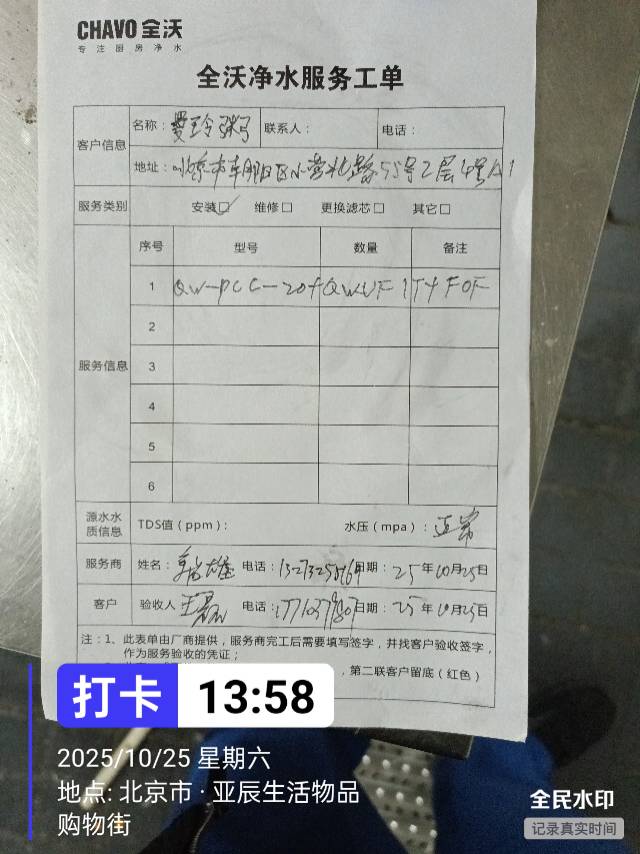 CHAVO 全沃
专注厨房净水
全沃净水服务工单
客户信息
名称：
联系人：
电话：
地址：北京市朝阳区小营北路55号2层
服务类别
安装☑ 维修□ 更换滤芯□ 其它□
服务信息
序号 型号 数量 备注
1 QW-PCC-20+QWUF 1T+FOF
2
3
4
5
6
源水水质信息
TDS值（ppm）：
水压（mpa）：正常
服务商 姓名： 电话： 日期：25年10月25日
客户 验收人 王磊 电话： 日期：25年10月25日
注：1、此表单由厂商提供，服务商完工后需要填写签字，并找客户验收签字，
作为服务验收的凭证；
，第二联客户留底（红色）
打卡 13:58
2025/10/25 星期六
地点: 北京市 · 亚辰生活物品
购物街
全民水印
记录真实时间